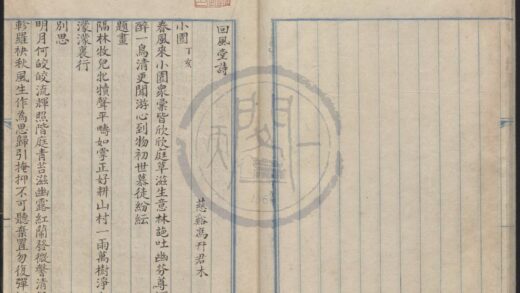 回風堂詩
慈谿馮幵君木
小園 丁亥
春風來小園眾彙皆欣欣庭草滋生意林葩吐幽芬尊
醉一鳥清更聞游心到物初世慕徒紛紜
題畫
隔林牧兒叱犢聲平疇如掌正好耕山村一雨萬樹淨
濛濛裏行
別思
明月何皎皎流輝照階庭青苔滋幽露紅蘭發微馨清
軫羅袂秋風生作為思歸引掩抑不可聽棄置勿復彈